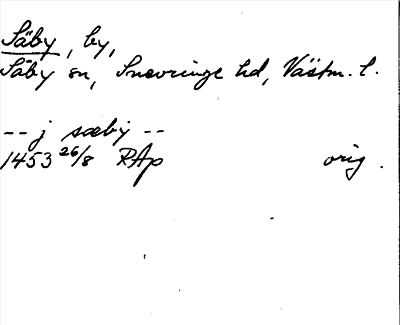 Säby, by,
Säby sn, Snevringe hd, Västm. l.
-- j sæby --
1453 26/8 RAp orig.